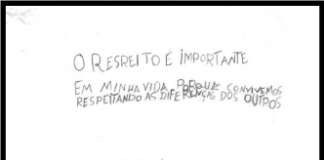 O RESREITO É IMPORTANTE
EM MINHA VIDA PORQUE CONVIVEMOS
RESPEITANDO AS DIFERENÇAS DOS OUTROS